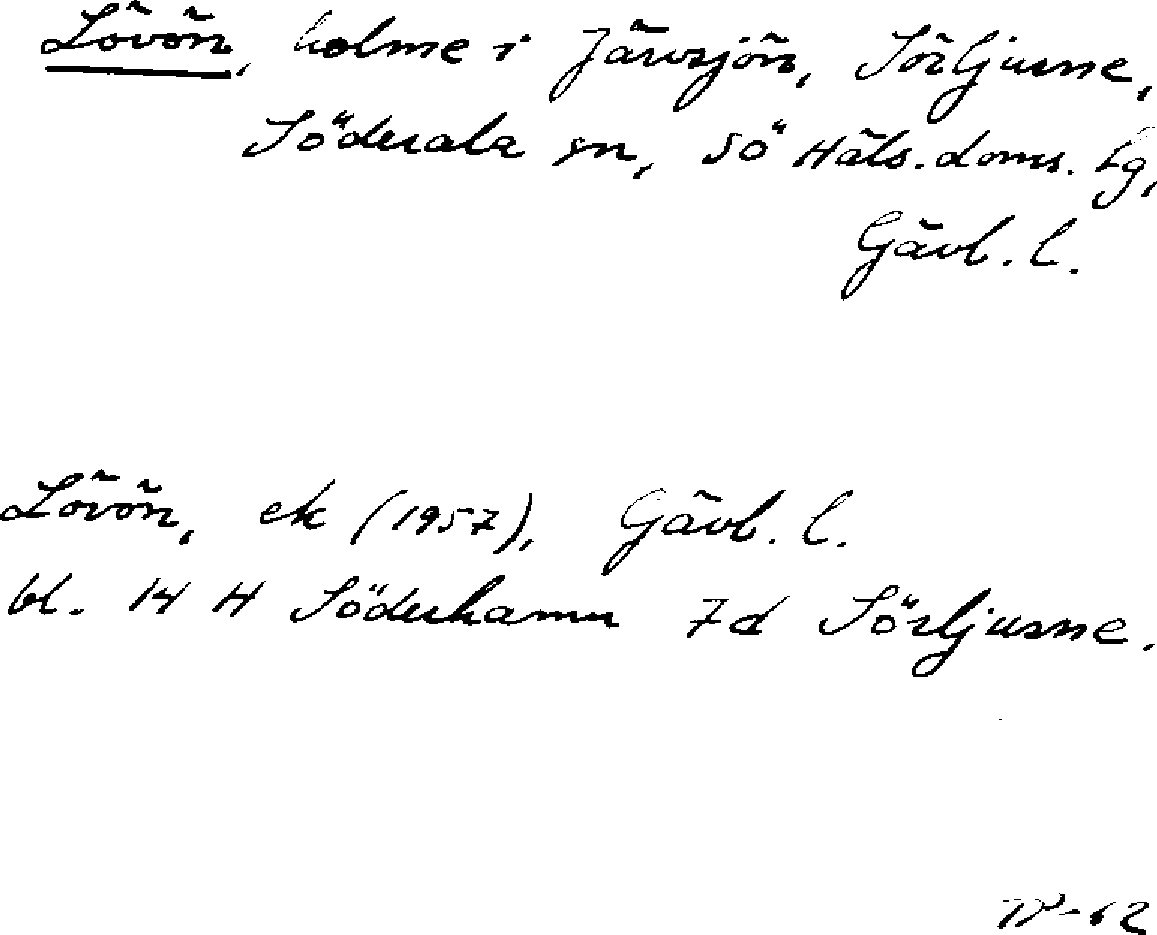 Lövön, holme i Järvsjön, Sörljusne,
Söderala sn, Sö Häls. doms. lg,
Gävl. l.
Lövön, ek (1957), Gävl. l.
bl. 14 H Söderhamn 7d Sörljusne.